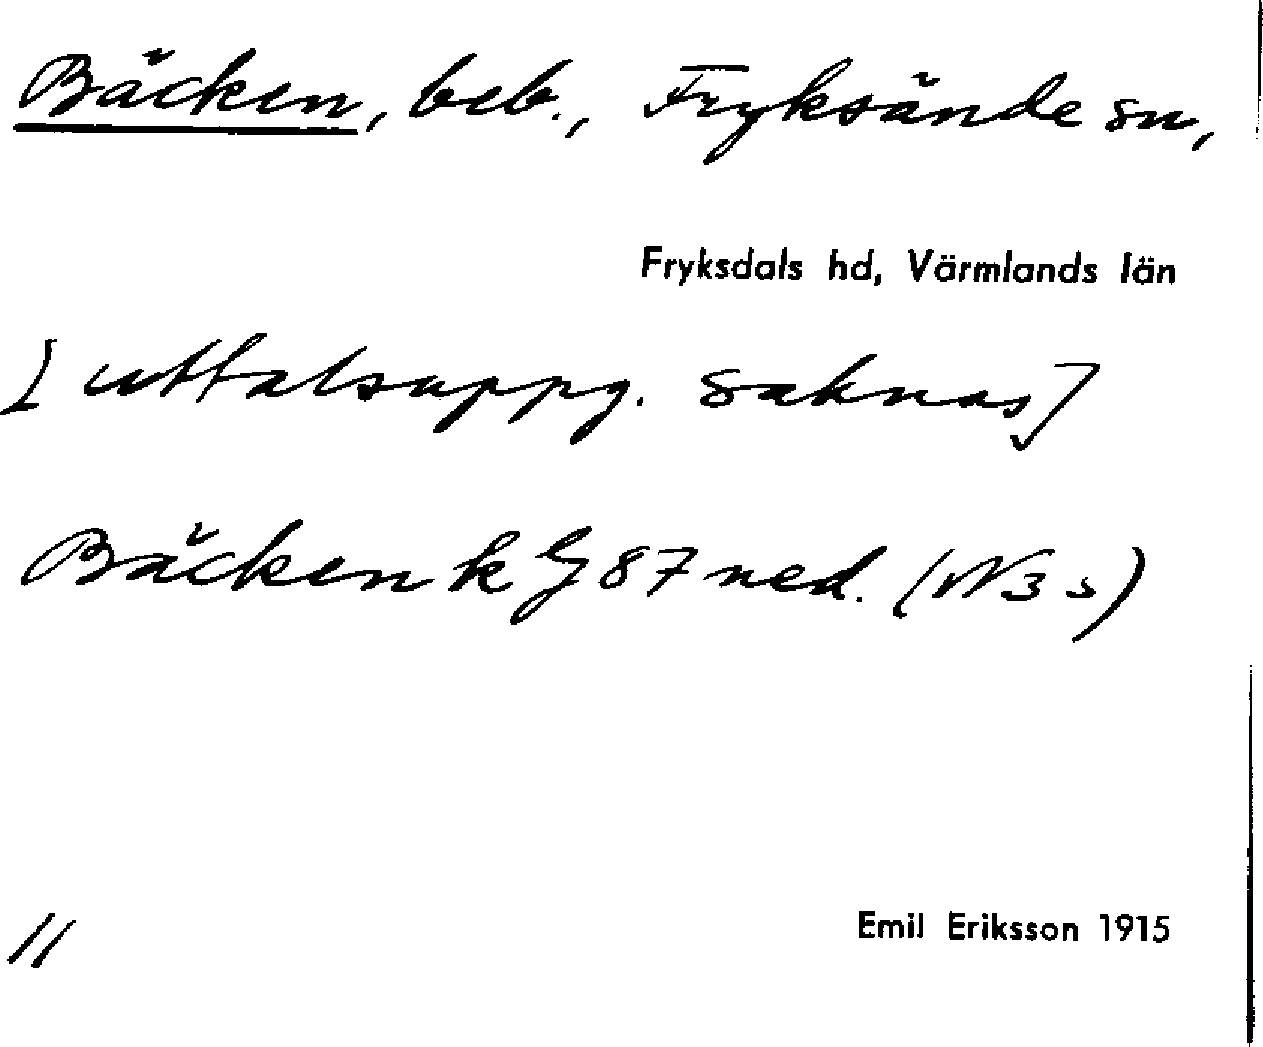 Bäcken, beb., Fryksände sn,
Fryksdals hd, Värmlands län
[uttalsuppg. saknas]
Bäcken k 87 ned. (N3s)
11
Emil Eriksson 1915